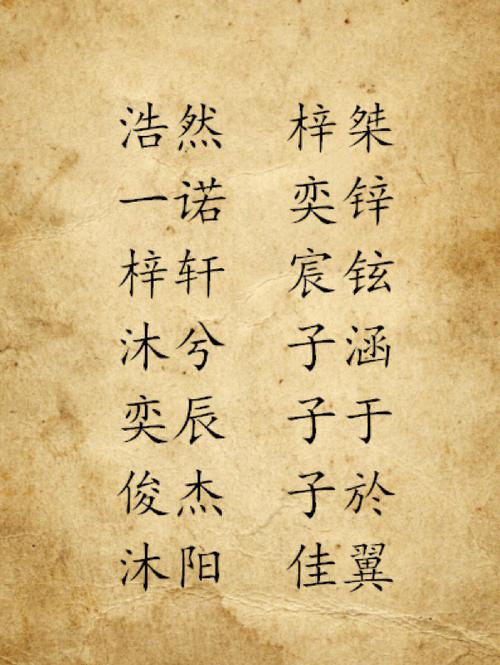 浩然 梓桀
一诺 奕锌
梓轩 宸铉
沐兮 子涵
奕辰 子于
俊杰 子於
沐阳 佳翼